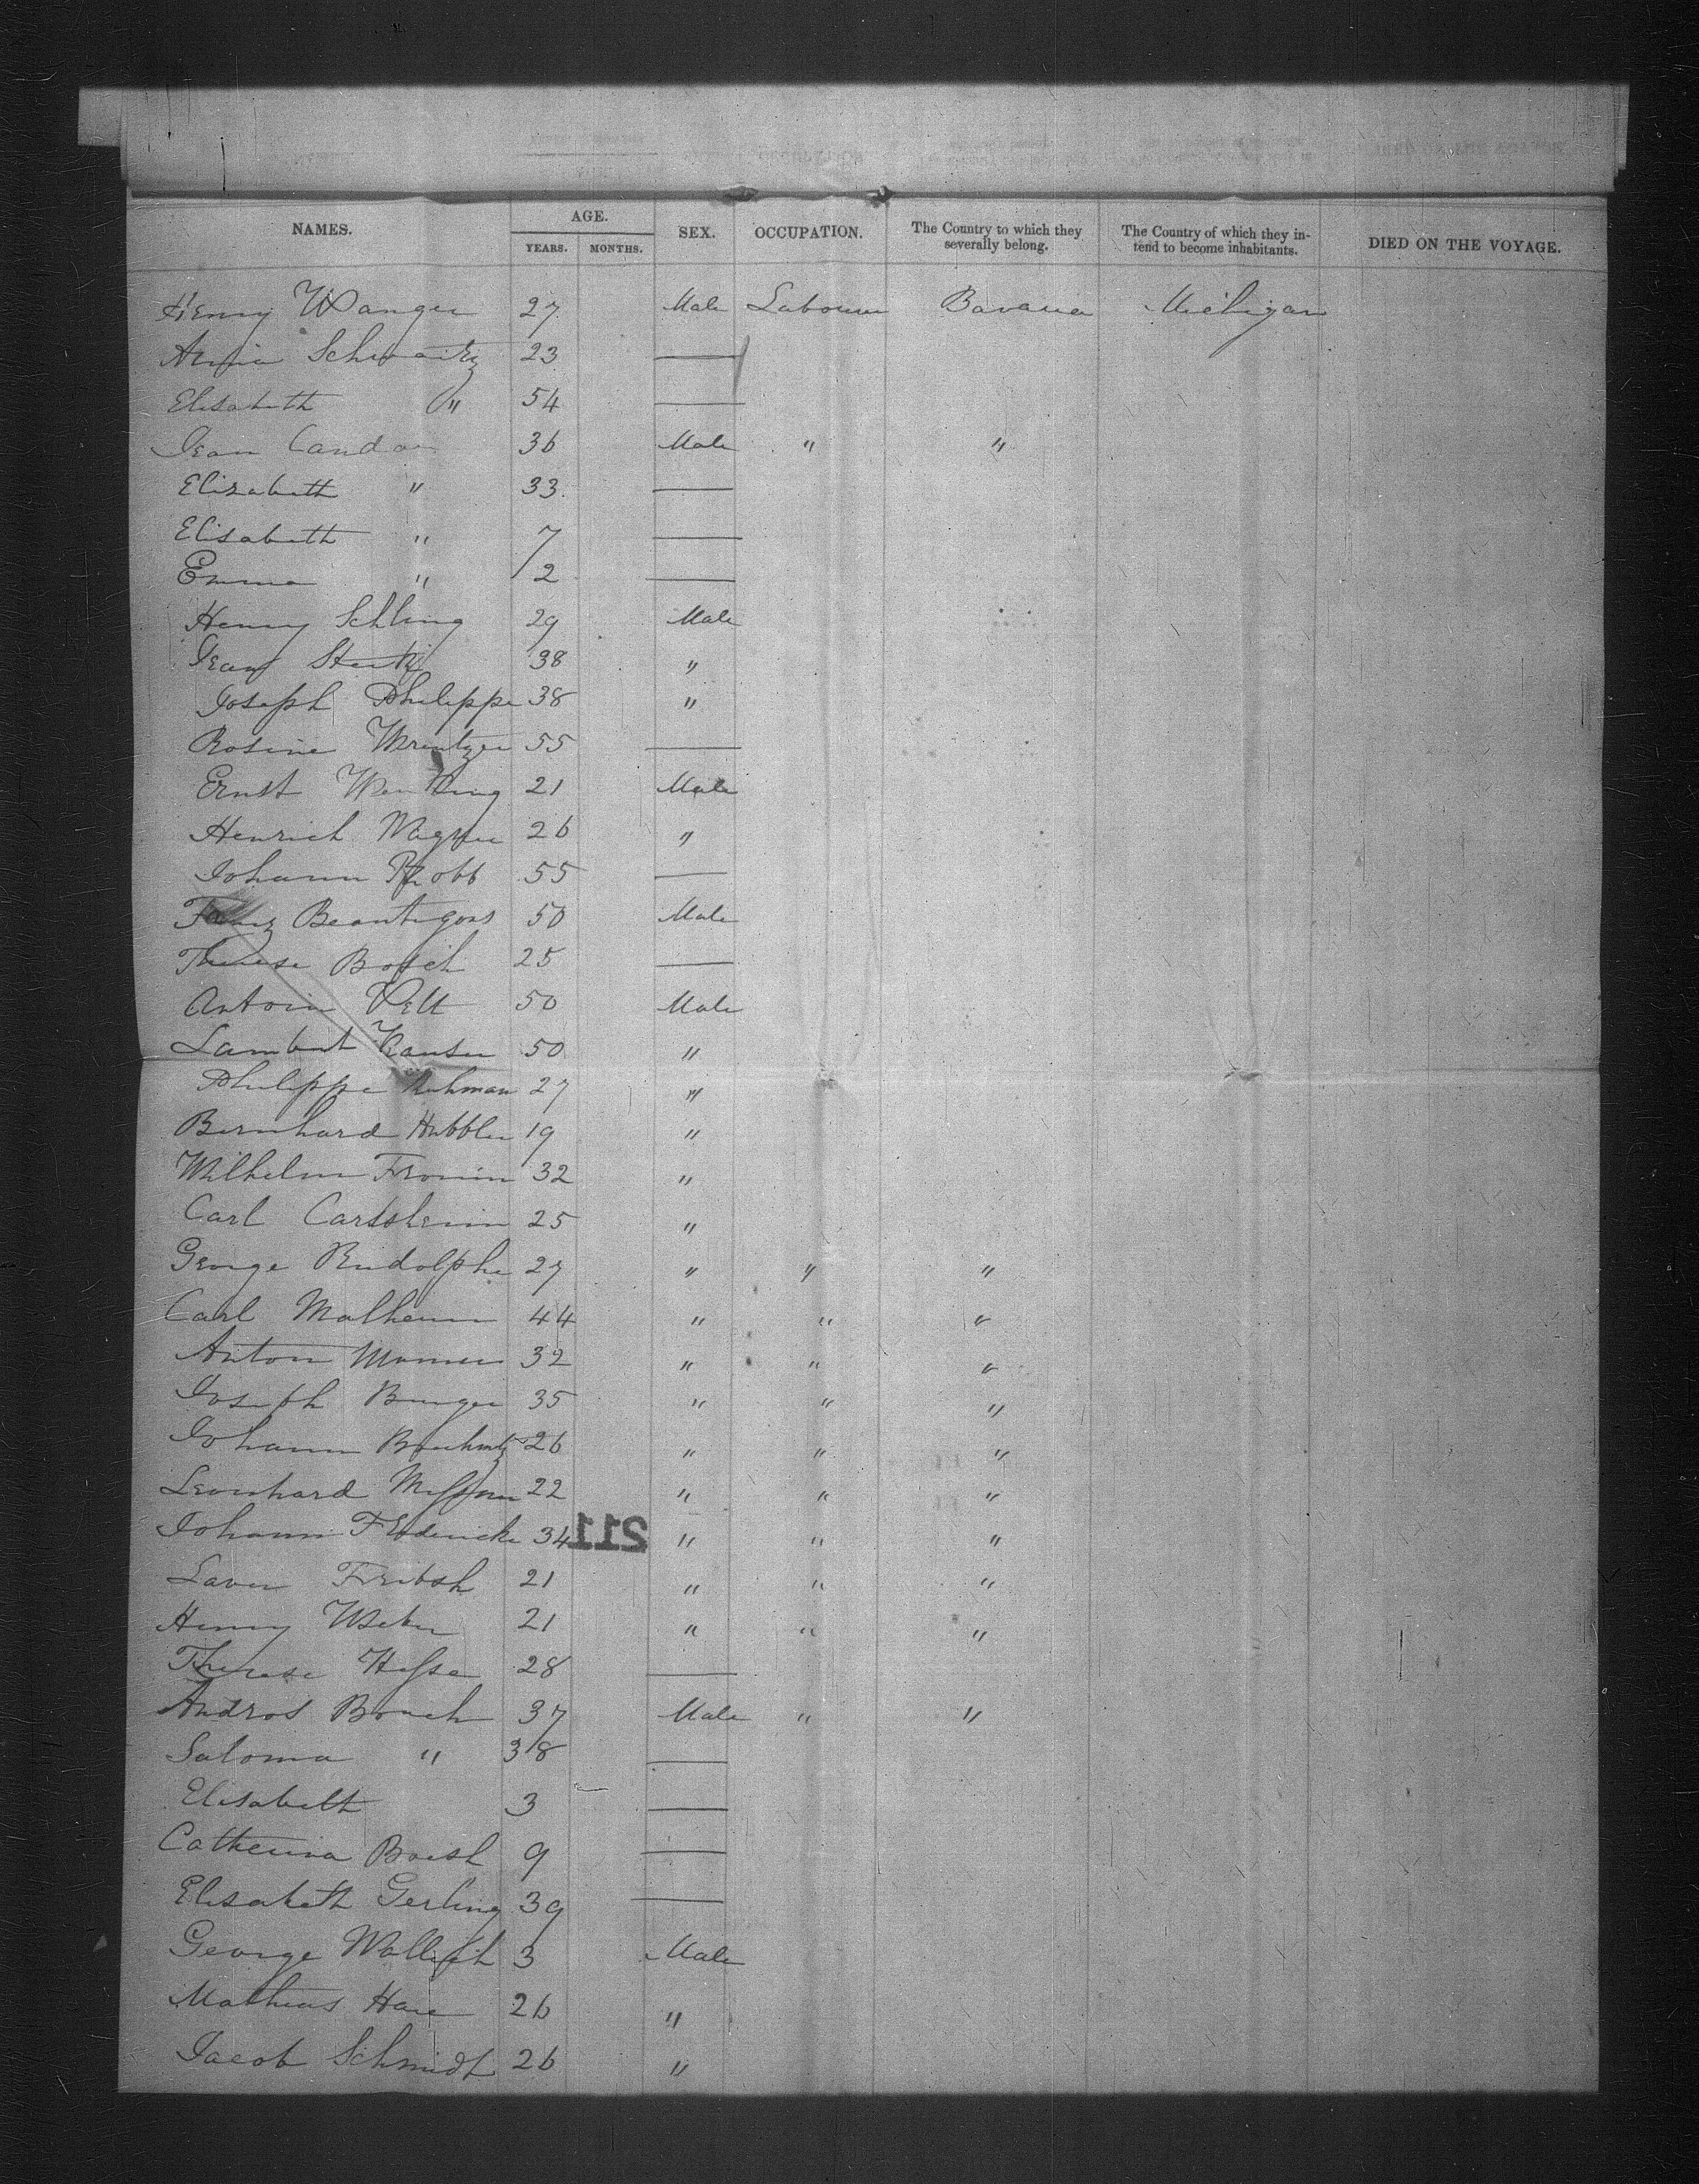 NAMES. AGE. YEARS. MONTHS. SEX. OCCUPATION. The Country to which they severally belong. The Country of which they intend to become inhabitants. DIED ON THE VOYAGE.
Henry Wanger 27 Male Labourer Bavaria Michigan
Annie Schwartz 23 —
Elisabeth " 54 —
Jean Candar 36 Male " "
Elizabeth " 33 —
Elisabeth " 7 —
Emma " 2 —
Henry Schling 29 Male
Jean 38 "
Joseph Philippe 38 "
Rosine 55 —
Ernst 21 Male
Henrich Wagner 26 "
Johann 55 —
Franz 50 Male
Therese Bosch 25 —
Antoin Velt 50 Male
Lambert 50 "
Philippe Ruhman 27 "
Bernhard Hubbler 19 "
Wilhelm Fronin 32 "
Carl 25 "
George Rudolphe 27 " " "
Carl Malheim 44 " " "
Anton 32 " " "
Joseph Burger 35 " " "
Johann 26 " " "
Leonhard 22 " " "
Johann 34 " " "
211
21 " " "
Henry Weber 21 " " "
Therese Hesse 28 —
Andros Bouch 37 Male " "
Saloma " 38 —
Elisabett 3 —
Catherina Boesh 9 —
Elisabeth Gerling 39 —
George 3 Male
Mathias Hane 26 "
Jacob Schmidt 26 "